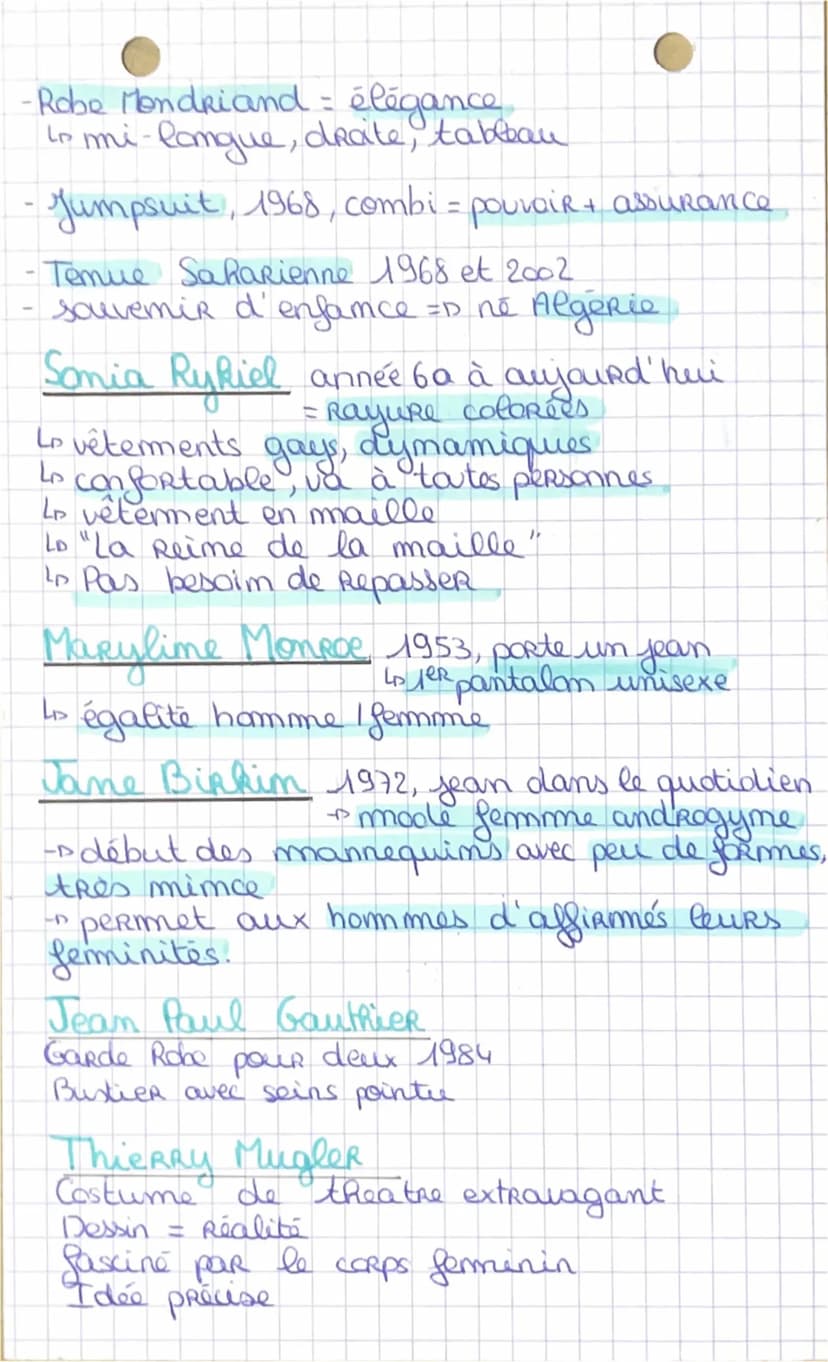 - Robe Mondriand = élégance
↳ mi-longue, droite, tableau
- Jumpsuit, 1968, combi = pouvoir + assurance
- Tenue Saharienne 1968 et 2002
- souvenir d'enfance => né Algérie
Sonia Rykiel année 60 à aujourd'hui
= Rayure colorées
↳ vêtements gays, dynamiques
↳ confortable, va à toutes personnes
↳ vêtement en maille
↳ "La Reine de la maille"
↳ Pas besoin de repasser
Maryline Monroe 1953, porte un jean
↳ 1er pantalon unisexe
↳ égalité homme / femme
Jane Birkin 1972, jean dans le quotidien
→ mode femme androgyne
→ début des mannequins avec peu de formes,
très mince
→ permet aux hommes d'affirmés leurs
feminités.
Jean Paul Gauthier
Garde Robe pour deux 1984
Bustier avec seins pointu
Thierry Mugler
Costume de theatre extravagant
Dessin = Réalité
fasciné par le corps feminin
Idée précise